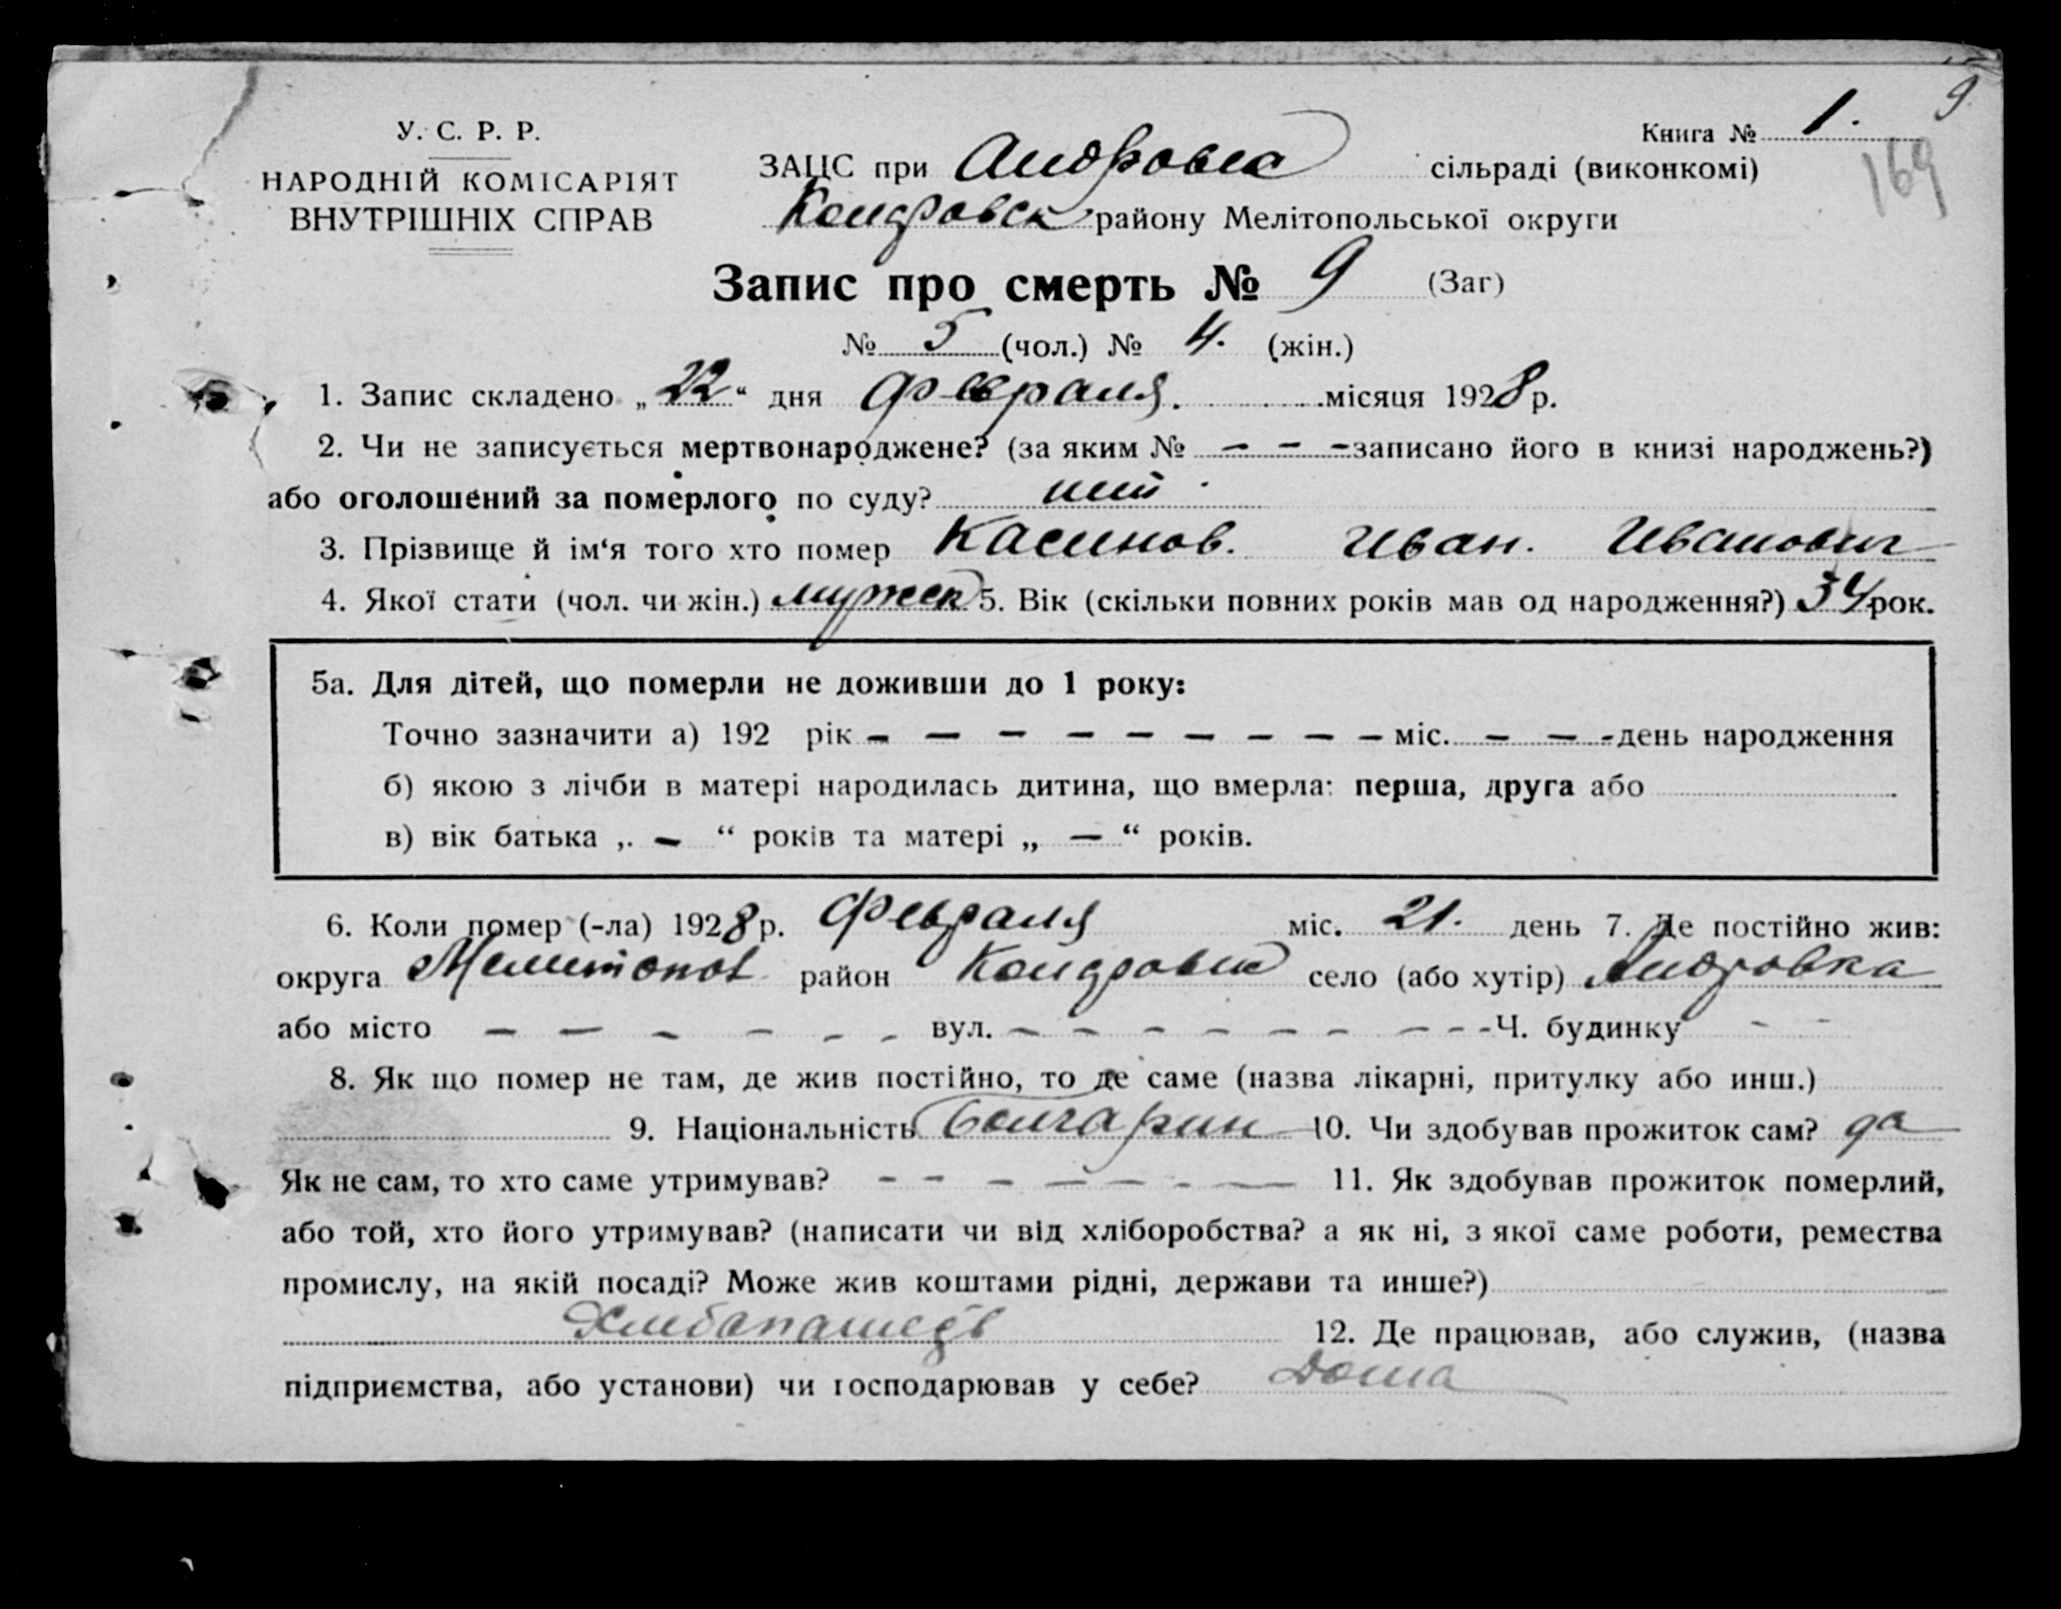 9
У. С. Р. Р.
НАРОДНІЙ КОМІСАРІЯТ
ВНУТРІШНІХ СПРАВ
Книга № 1.
169
ЗАЦС при Андровка сільраді (виконкомі)
району Мелітопольської округи
Запис про смерть № 9 (Заг)
№ 5 (чол.) № 4. (жін.)
1. Запис складено „22“ дня февраля. місяця 1928 р.
2. Чи не записується мертвонароджене? (за яким № – – – записано його в книзі народжень?)
або оголошений за померлого по суду?
3. Прізвище й ім‘я того хто помер Касинов. Иван. Иванович
4. Якої стати (чол. чи жін.) мужск 5. Вік (скільки повних років мав од народження?) 34 рок.
5а. Для дітей, що померли не доживши до 1 року:
Точно зазначити а) 192 рік – – – – – – – – міс. – – – день народження
б) якою з лічби в матері народилась дитина, що вмерла: перша, друга або
в) вік батька „ – “ років та матері „ – “ років.
6. Коли помер (-ла) 1928 р. февраля міс. 21. день 7. Де постійно жив:
округа Мелитопол район село (або хутір) Андровка
або місто – – – – – – вул. – – – – – – – – – Ч. будинку – –
8. Як що помер не там, де жив постійно, то де саме (назва лікарні, притулку або инш.)
9. Національність болгарин 10. Чи здобував прожиток сам? да
Як не сам, то хто саме утримував? – – – – – – – 11. Як здобував прожиток померлий,
або той, хто його утримував? (написати чи від хліборобства? а як ні, з якої саме роботи, ремества
промислу, на якій посаді? Може жив коштами рідні, держави та инше?)
12. Де працював, або служив, (назва
підприємства, або установи) чи господарював у себе? Дома